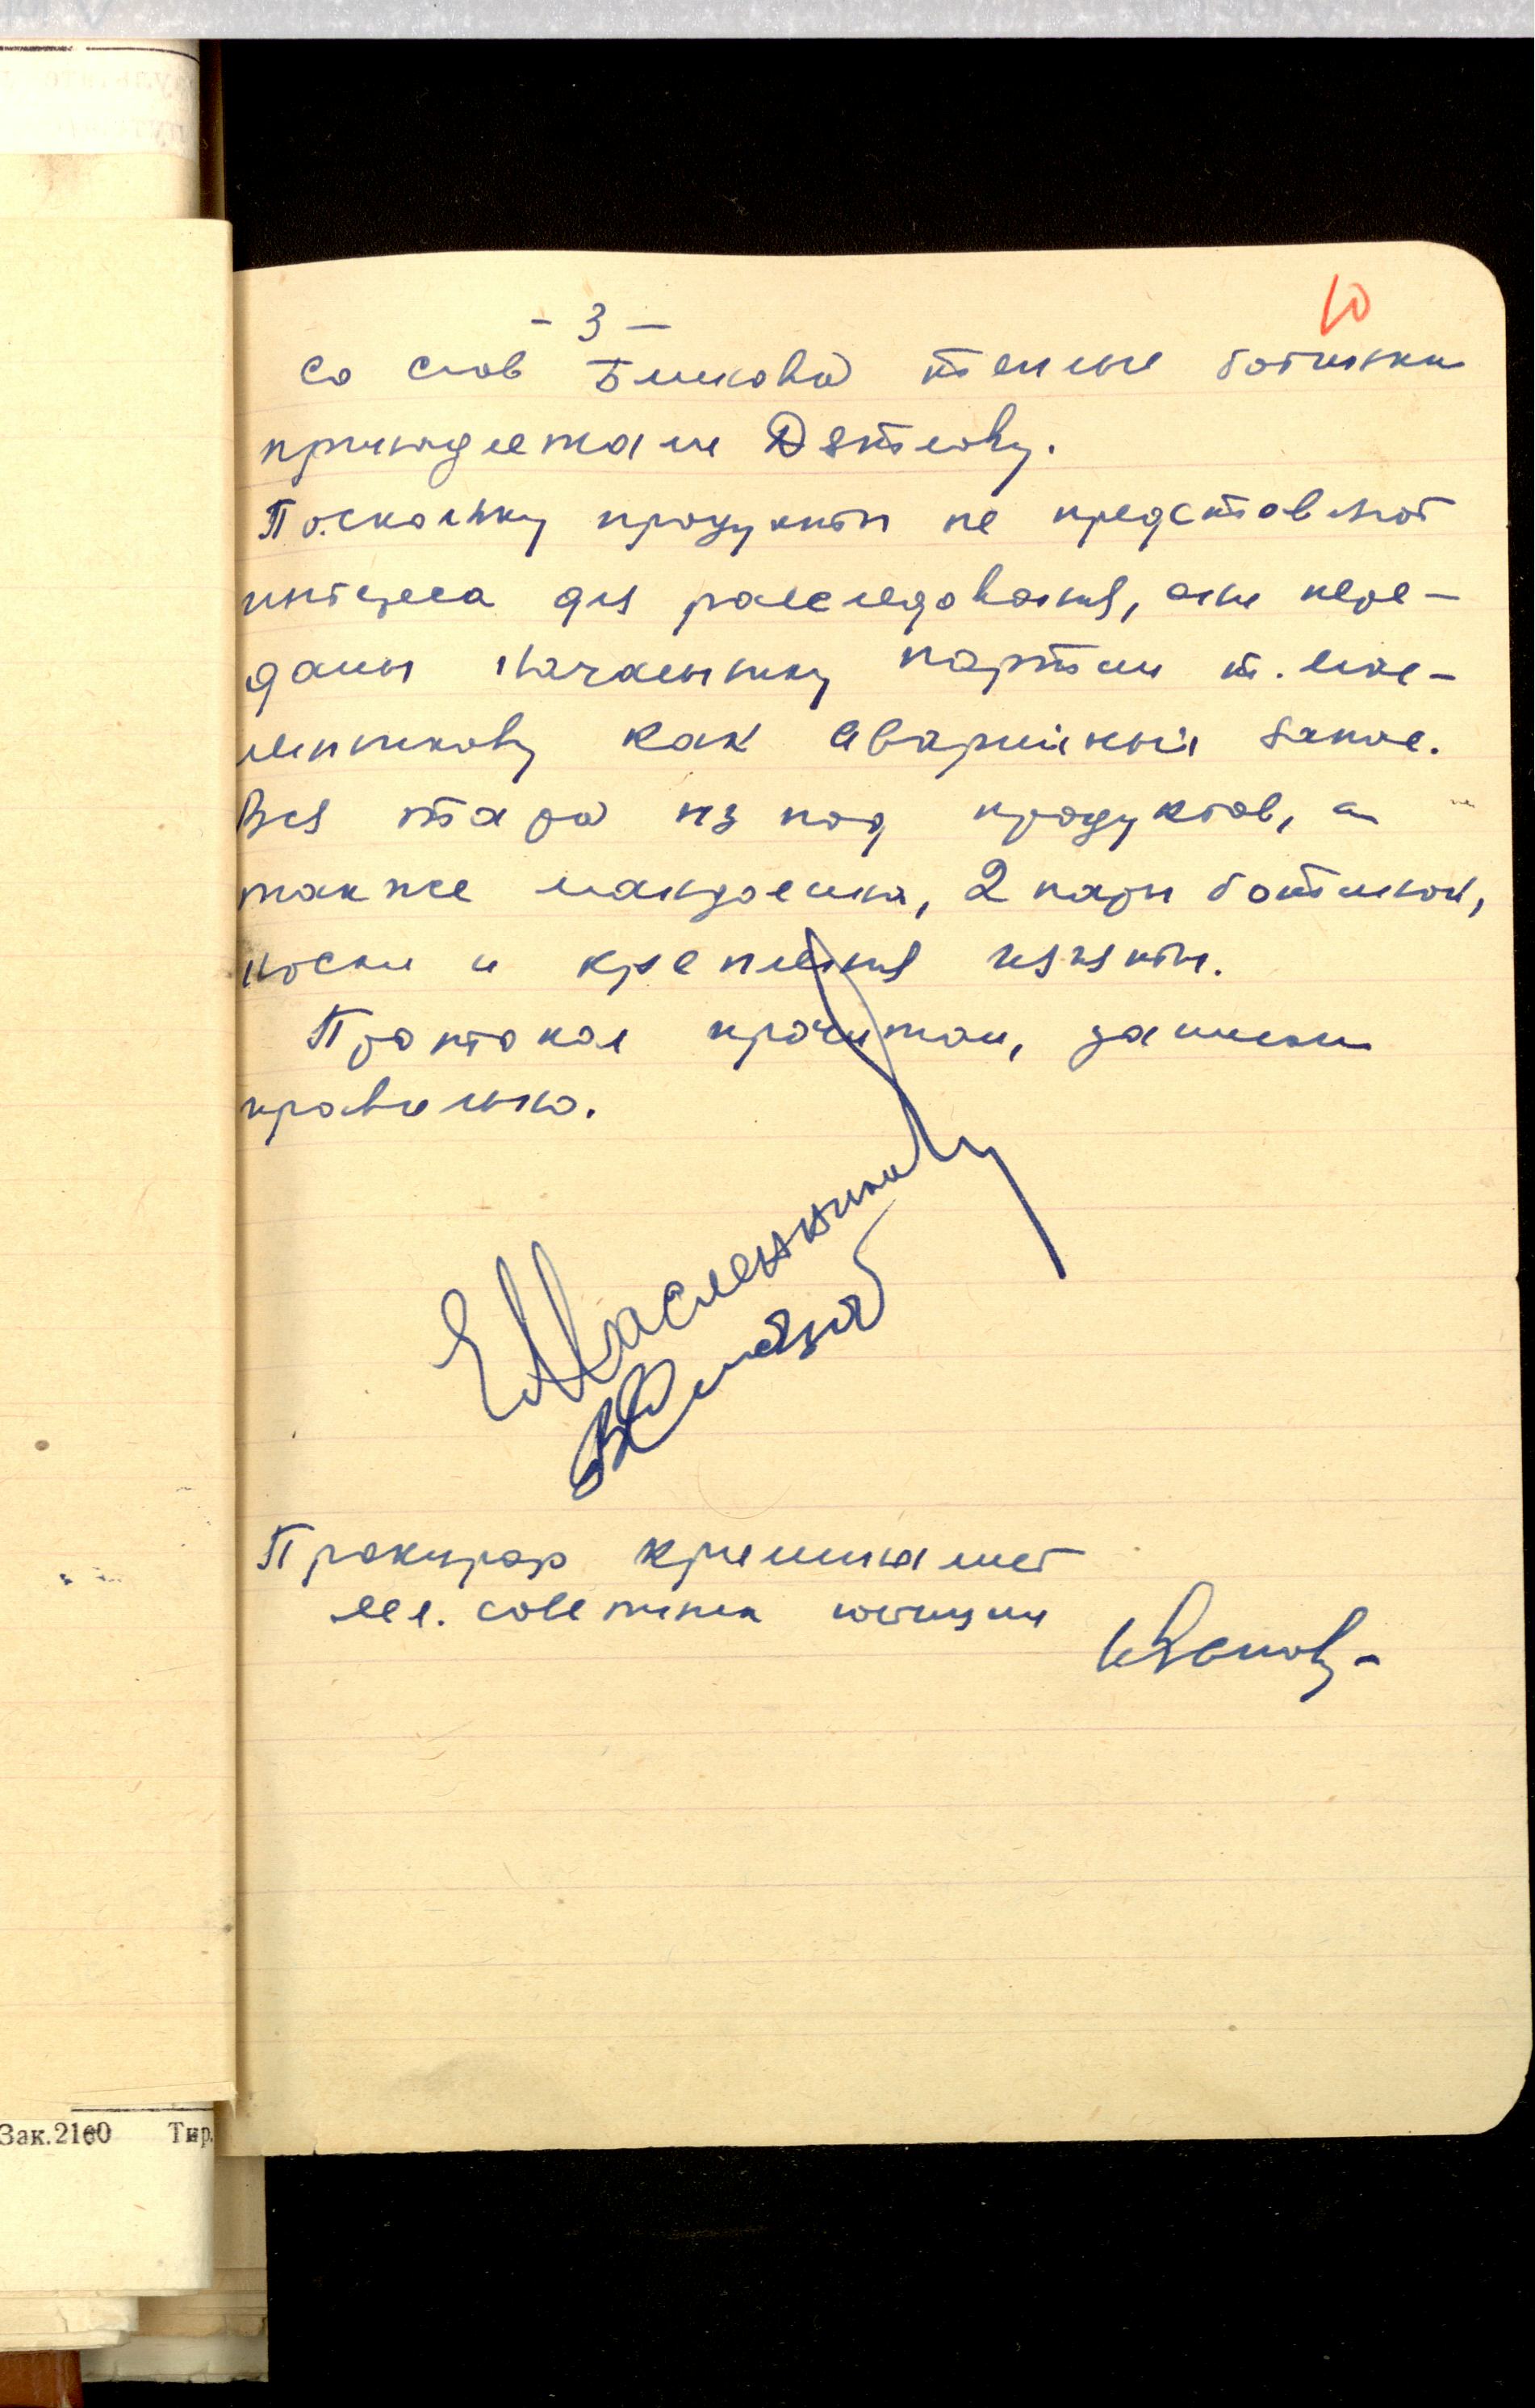 10
- 3 -
со слов Бликова теплые ботинки
принадлежали Дятлову.
Поскольку продукты не представляют
интереса для расследования, они пере-
даны начальнику партии т. Мас-
ленникову как аварийный запас.
Вся тара из под продуктов, а
также мандолина, 2 пары ботинок,
носки и крепления изъяты.
Протокол прочитан, записан
правильно.
Е Масленников
Прокурор криминалист
мл. советник юстиции
Иванов
Зак.2160 Тир.